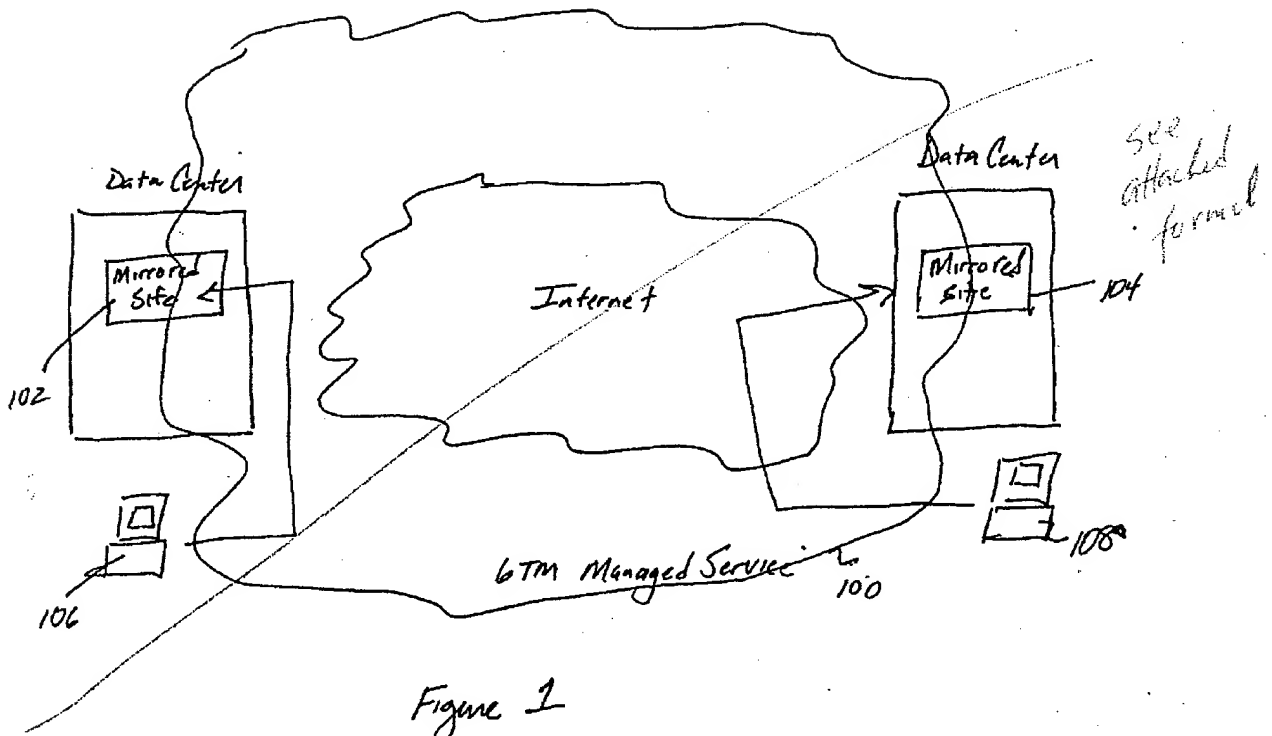 Data Center
Mirrored
Site
102
106
Internet
Data Center
Mirrored
Site
104
108
see
attached
formal
GTM Managed Service
100
Figure 1